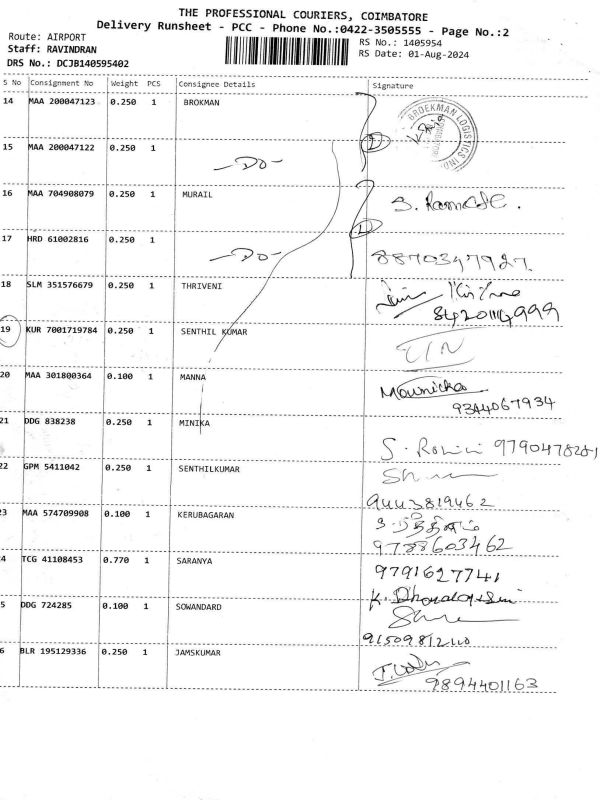 THE PROFESSIONAL COURIERS, COIMBATORE
Delivery Runsheet - PCC - Phone No.:0422-3505555 - Page No.:2
Route: AIRPORT
Staff: RAVINDRAN
DRS No.: DCJB140595402
RS No.: 1405954
RS Date: 01-Aug-2024
S No Consignment No Weight PCS Consignee Details Signature
14 MAA 200047123 0.250 1 BROKMAN
BROEKMAN LOGISTICS IND
15 MAA 200047122 0.250 1 -Do-
16 MAA 704908079 0.250 1 MURAIL
17 HRD 61002816 0.250 1 -Do- 8870347927
18 SLM 351576679 0.250 1 THRIVENI
19 KUR 7001719784 0.250 1 SENTHIL KUMAR
20 MAA 301800364 0.100 1 MANNA Mounicka
9344067934
21 DDG 838238 0.250 1 MINIKA
22 GPM 5411042 0.250 1 SENTHILKUMAR
9443819462
23 MAA 574709908 0.100 1 KERUBAGARAN
9788603462
4 TCG 41108453 0.770 1 SARANYA 9791627741
5 DDG 724285 0.100 1 SOWANDARD
6 BLR 195129336 0.250 1 JAMSKUMAR
9894401163